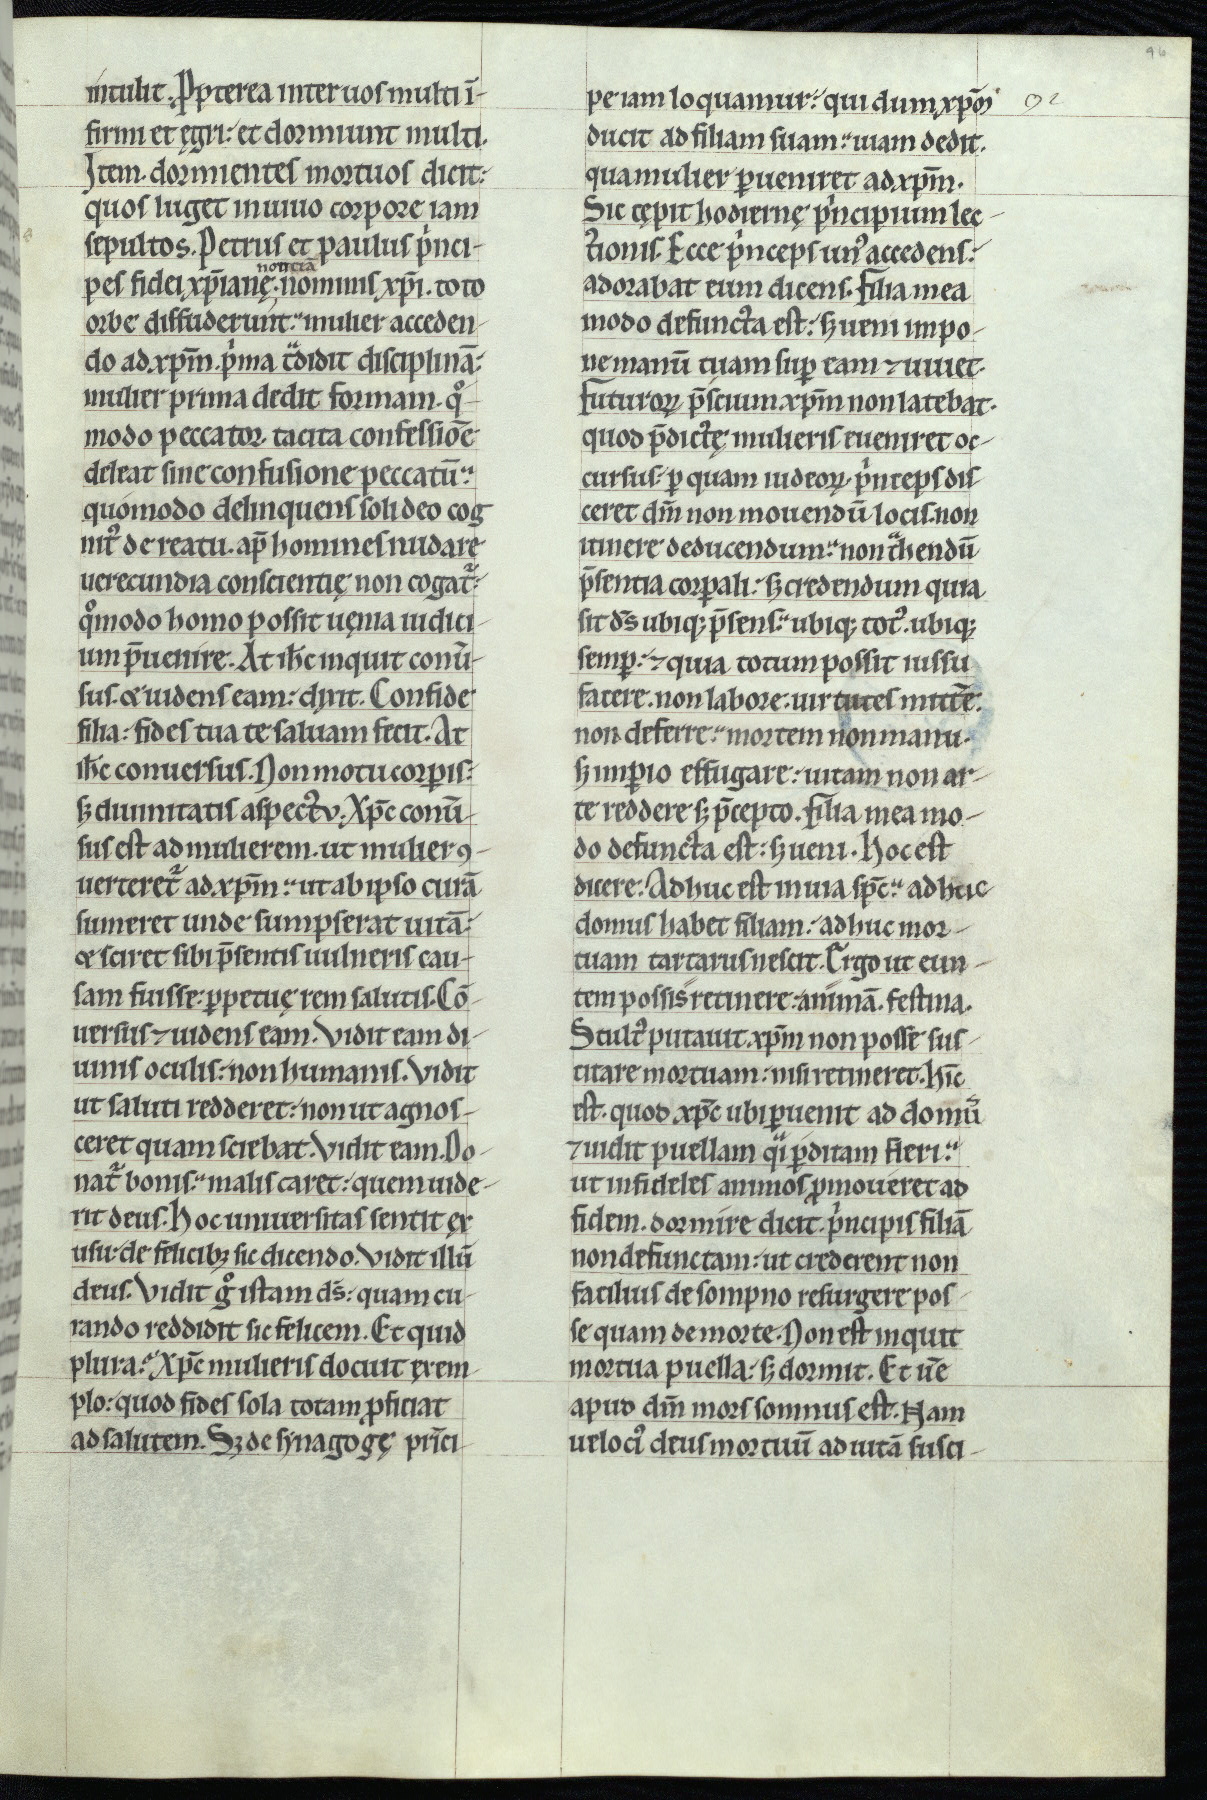 96
92
intulit. Ppterea inter uos multi ī-
firmi et ęgri: et dormiunt multi.
Item. dormientes mortuos dicit:
quos luget in uiuo corpore iam
sepultos. Petrus et paulus p̍nci-
noticiā
pes fidei xp̄ianę. nominis xp̄i. toto
orbe diffuderunt: mulier acceden-
do ad xp̄m. p̍ma tͣdidit disciplinā:
mulier prima dedit formam. qͦ-
modo peccator. tacita confessiōe
deleat sine confusione peccatū:
quomodo delinquens soli deo cog
nitꝰ de reatu. ap̄ homines nudare
uerecundia conscientię non cogat᷑:
qͦmodo homo possit uęnia iudici-
um p̄uenire. At ih̄c inquit conū-
sus. & uidens eam: dixit. Confide
filia: fides tua te saluam fecit. At
ih̄c conuersus. Non motu corp̱is:
sꝫ diuinitatis aspectu. Xp̄c conū-
sus est ad mulierem. ut mulier ꝯ-
uerteret᷑ ad xp̄m: ut ab ipso curā
sumeret unde sumpserat uitā:
& sciret sibi p̄sentis uulneris cau-
sam fuisse: ꝑpetuę rem salutis. Cō-
uersus ⁊ uidens eam. Vidit eam di-
uinis oculis: non humanis. Vidit
ut saluti redderet: non ut agnos-
ceret quam sciebat. Vidit eam. Do-
nat᷑ bonis: malis caret: quem uide-
rit deus. Hoc uniuersitas sentit ex
usu: de felicibꝫ sic dicendo. Vidit illū
deus. Vidit gͦ istam ds̄: quam cu-
rando reddidit sic felicem. Et quid
plura: Xp̄c mulieris docuit exem-
plo: quod fides sola totam ꝓficiat
ad salutem. Sꝫ de synagogę princi-
pe iam loquamur: qui dum xp̄m
ducit ad filiam suam: uiam dedit.
qua mulier ꝑueniret ad xp̄m.
Sic cępit hodiernę p̍ncipium lec-
tionis. Ecce p̍nceps unꝰ accedens:
adorabat eum dicens. Filia mea
modo defuncta est: sꝫ ueni impo-
ne manū tuam suꝑ eam ⁊ uiuet.
Futuroꝝ p̄scium xp̄m non latebat.
quod p̄dictę mulieris eueniret oc-
cursus: ꝑ quam iudeoꝝ p̍nceps dis
ceret dm̄ non mouendū locis. non
itinere deducendum: non tͣhendū
p̄sentia corꝑali: sꝫ credendum quia
sit ds̄ ubiqꝫ p̄sens: ubiqꝫ totꝰ. ubiqꝫ
semꝑ: ⁊ quia totum possit iussu
facere. non labore: uirtutes mittēe:
non deferre: mortem non manu.
sꝫ imꝑio effugare: uitam non ar-
te reddere sꝫ p̄cepto. Filia mea mo-
do defuncta est: sꝫ ueni. Hoc est
dicere: Adhuc est in uia sp̄c: adhuc
domus habet filiam: adhuc mor-
tuam tartarus nescit. Ergo ut eun-
tem possis retinere animā. festina.
Stultꝰ putauit. xp̄m non posse sus-
citare mortuam: nisi retineret. Hīc
est. quod xp̄c ubi ꝑuenit ad domū
⁊ uidit puellam qͣi ꝑditam fieri:
ut infideles animos ꝓmoueret ad
fidem. dormire dicit. p̍ncipis filiā
non defunctam: ut crederent non
facilius de sompno resurgere pos-
se quam de morte. Non est inquit
mortua puella: sꝫ dormit. Et ūe
apud dm̄ mors somnus est. Nam
uelociꝰ deus mortuū ad uitā susci-